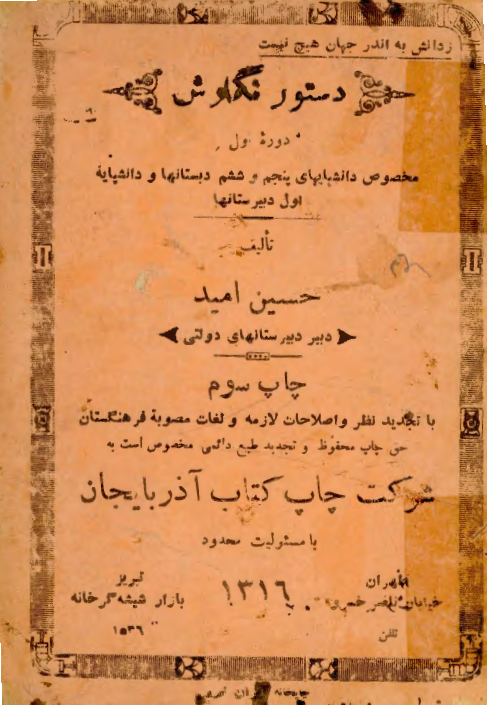 زدانش به اندر جهان هیچ نیست
دستور نگارش
دورهٔ اول
مخصوص دانشپایهای پنجم و ششم دبستانها و دانشپایهٔ
اول دبیرستانها
تألیف
حسین امید
دبیر دبیرستانهای دولتی
چاپ سوم
با تجدید نظر و اصلاحات لازمه و لغات مصوبهٔ فرهنگستان
حق چاپ محفوظ و تجدید طبع دائمی مخصوص است به
شرکت چاپ کتاب آذربایجان
با مسئولیت محدود
طهران
خیابان ناصر خسرو
تلفن
۱۳۱۶
تبریز
بازار شیشه گرخانه
۱۵۳۶
چاپخانه